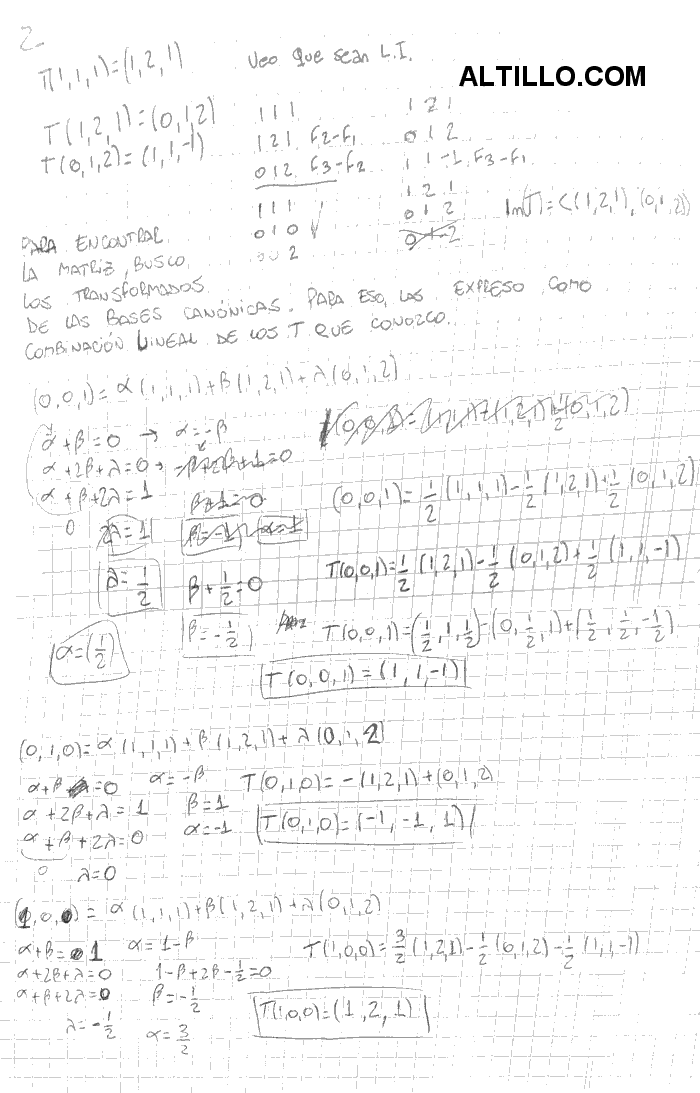 2-
T(1,1,1)=(1,2,1)
Veo que sean L.I.
ALTILLO.COM
T(1,2,1)=(0,1,2)
T(0,1,2)=(1,1,-1)
1 1 1
1 2 1 F2-F1
0 1 2 F3-F2
1 1 1
0 1 0 ✓
0 0 2
1 2 1
0 1 2
1 1 -1 F3-F1
1 2 1
0 1 2
0 -1 -2
Im(T)=<(1,2,1),(0,1,2)>
PARA ENCONTRAR
LA MATRIZ, BUSCO
LOS TRANSFORMADOS
DE LAS BASES CANÓNICAS. PARA ESO, LAS EXPRESO COMO
COMBINACIÓN LINEAL DE LOS T QUE CONOZCO.
(0,0,1)=α(1,1,1)+β(1,2,1)+λ(0,1,2)
α+β=0 → α=-β
α+2β+λ=0 → -β+2β+1=0
α+β+2λ=1 β+1=0
0 2λ=1 β=-1 α=1
λ=1/2 β+1/2=0
β=-1/2
α=(1/2)
(0,0,1)=1/2(1,1,1)-1/2(1,2,1)+1/2(0,1,2)
T(0,0,1)=1/2(1,2,1)-1/2(0,1,2)+1/2(1,1,-1)
T(0,0,1)=(1/2,1,1/2)-(0,1/2,1)+(1/2,1/2,-1/2)
T(0,0,1)=(1,1,-1)
(0,1,0)=α(1,1,1)+β(1,2,1)+λ(0,1,2)
α+β=0 α=-β
α+2β+λ=1 β=1
α+β+2λ=0 α=-1
0 λ=0
T(0,1,0)=-(1,2,1)+(0,1,2)
T(0,1,0)=(-1,-1,1)
(1,0,0)=α(1,1,1)+β(1,2,1)+λ(0,1,2)
α+β=1 α=1-β
α+2β+λ=0 1-β+2β-1/2=0
α+β+2λ=0 β=-1/2
λ=-1/2 α=3/2
T(1,0,0)=3/2(1,2,1)-1/2(0,1,2)-1/2(1,1,-1)
T(1,0,0)=(1,2,1)